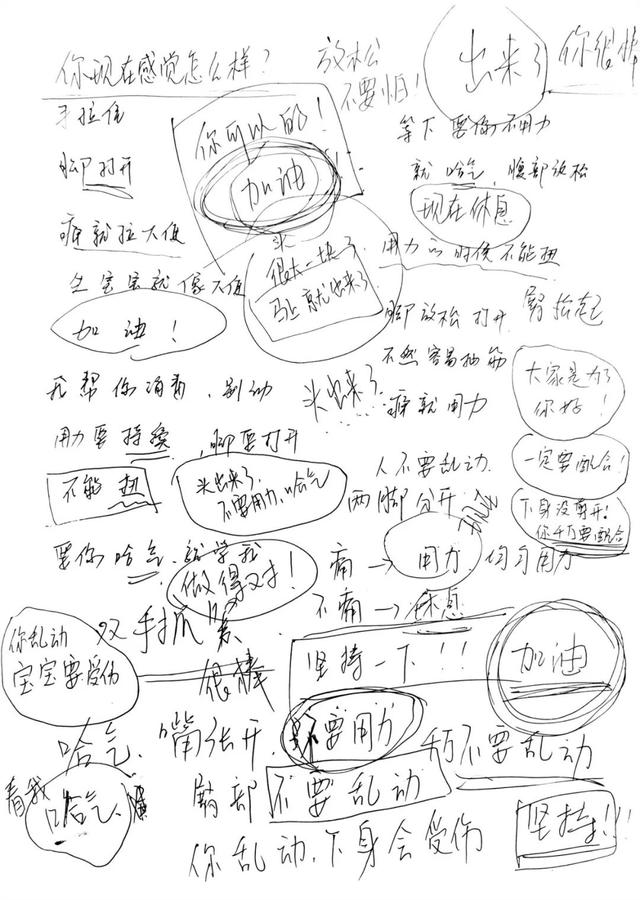 你现在感觉怎么样？
放松
不要怕！
出来了
你很棒
手拉住
脚打开
痛就拉大便
生宝宝就像大便
加油！
你可以的！
加油
头
很大一块了
马上就出来了
等下要你不用力
就哈气，腹部放松
现在休息
用力的时候不能扭
脚放松打开
臀抬起
不然容易抽筋
痛就用力
大家是为了
你好！
我帮你消毒，别动
头出来了
用力要持续，脚要打开
人不要乱动
一定要配合！
不能扭
头出来了，
不要用力，哈气
两脚分开
现在
下身没剪开！
你千万要配合
要你哈气，就学我
做得对！
痛→用力，均匀用力
不痛→休息
你乱动
宝宝要受伤
双手抓紧
很棒
坚持一下！！！
加油
哈气，嘴张开，不要用力
千万不要乱动
看我
哈气、
臀部不要乱动
坚持！！！
你乱动，下身会受伤